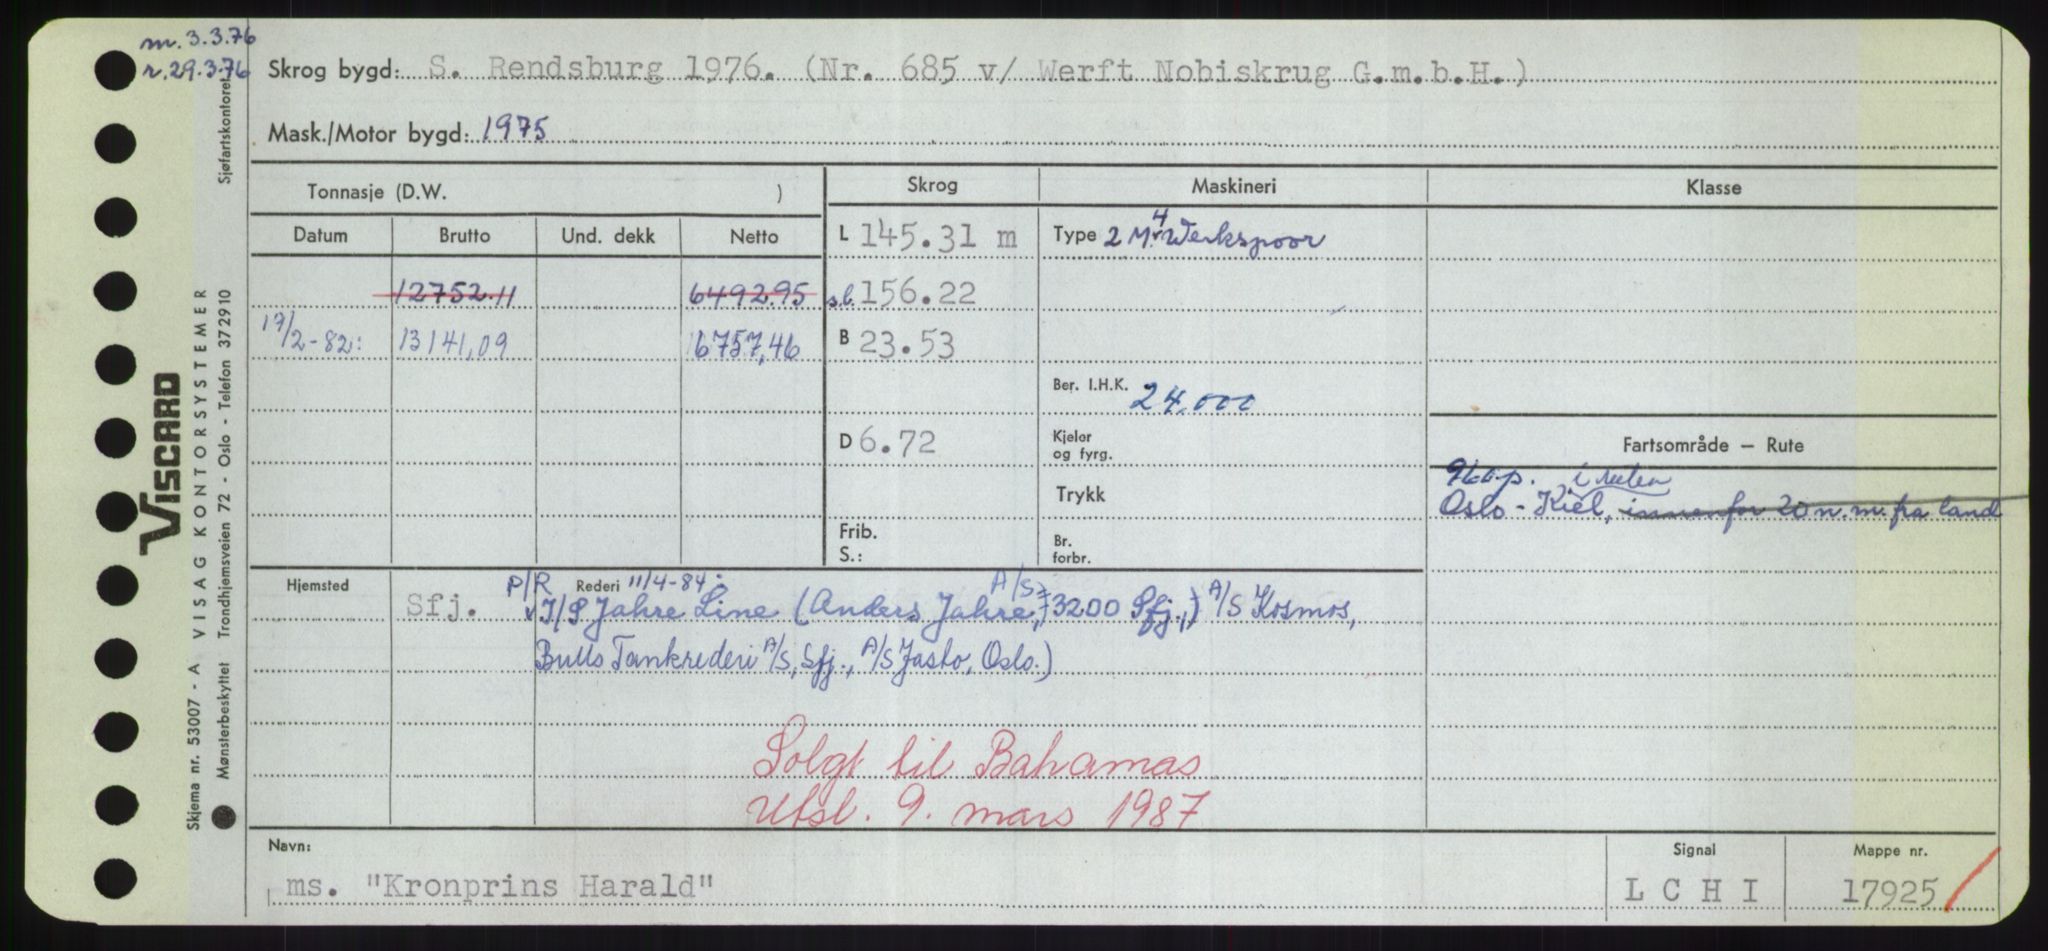 m. 3.3.76
r. 29.3.76
Skrog bygd: S. Rendsburg 1976. (Nr. 685 v/ Werft Nobiskrug G.m.b.H.)
Mask./Motor bygd: 1975
Tonnasje (D.W. )
Skrog
Maskineri
Klasse
Datum Brutto Und. dekk Netto
L 145.31 m
Type 2 M. 4 v Werkspoor
12752.11 6492.95
s.l. 156.22
17/2-82: 13141,09 6757,46
B 23.53
Ber. I.H.K. 24.000
D 6.72
Kjeler og fyrg.
Fartsområde — Rute
Trykk
i ruten
Oslo - Kiel, innenfor 20 n.m. fra land
Frib.
S.:
Br. forbr.
Hjemsted Rederi
P/R 11/4-84: A/S
Sfj. I/S Jahre Line (Anders Jahre, 3200 Sfj.,) A/S Kosmos,
Bulls Tankrederi A/S, Sfj., A/S Jasto, Oslo.)
Solgt til Bahamas
Utsl. 9. mars 1987
Navn:
ms. "Kronprins Harald"
Signal
LCHI
Mappe nr.
17925
VISCARD
Skjema nr. 53007 - A VISAG KONTORSYSTEMER
Mønsterbeskyttet Trondhjemsveien 72 - Oslo - Telefon 372910
Sjøfartskontoret